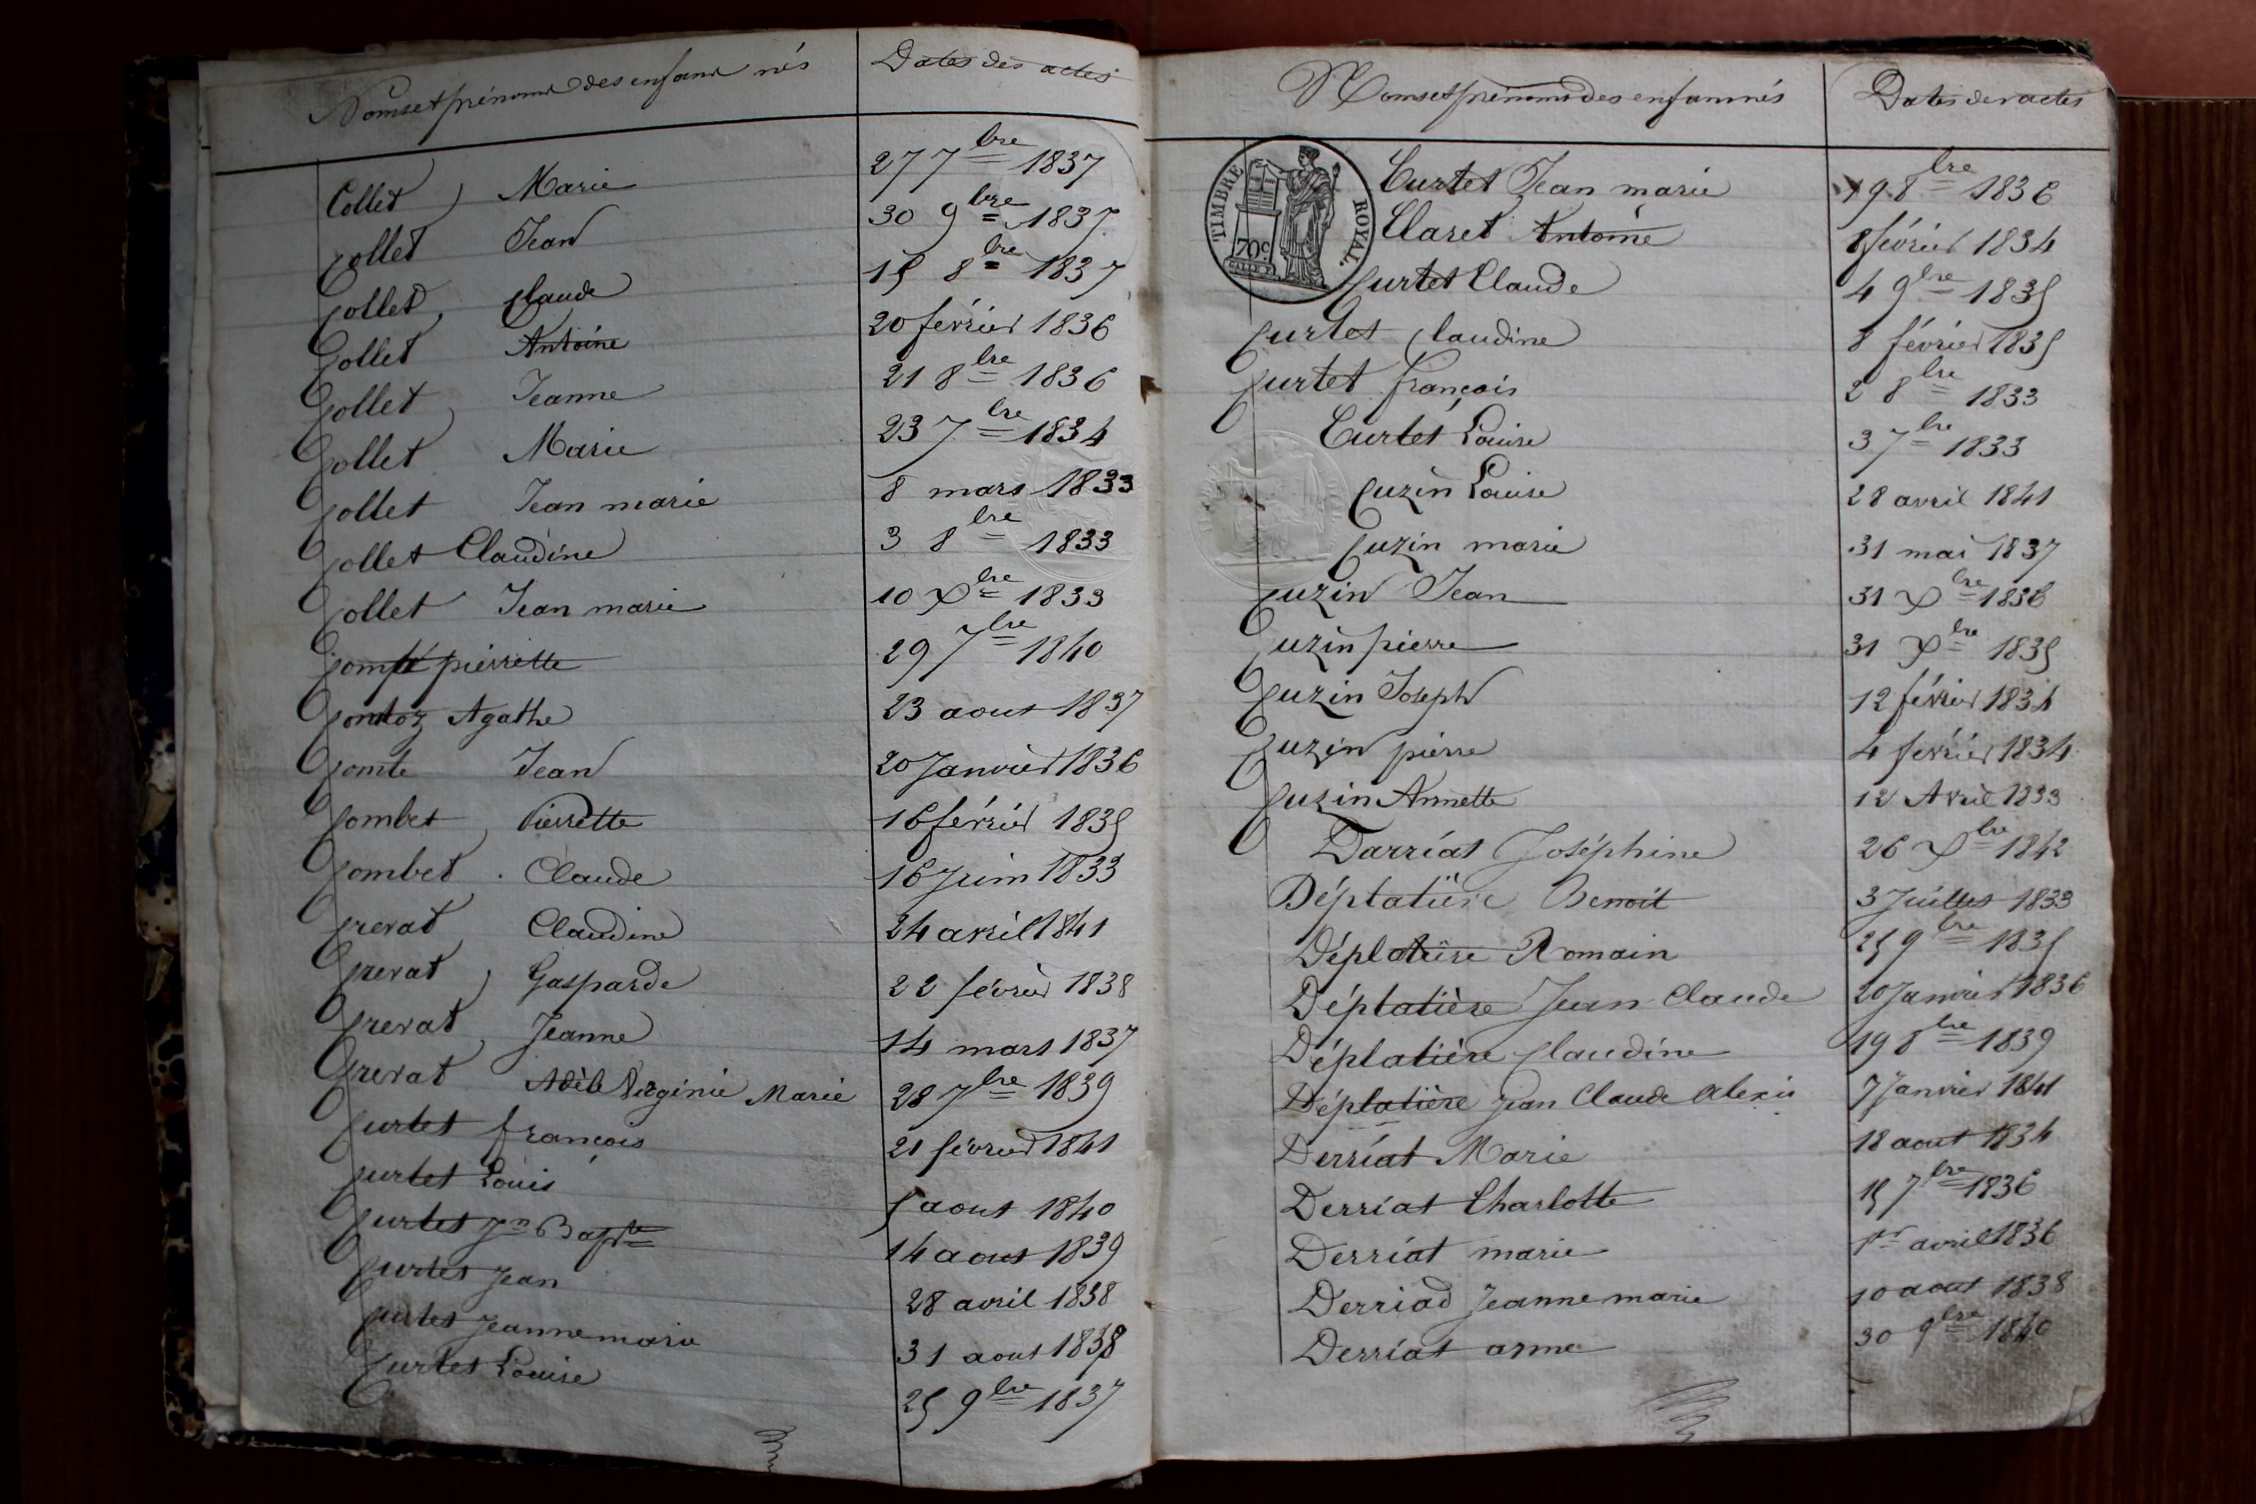 Noms et prénoms des enfans nés Dates des actes
Collet Marie 27 7bre 1837
Collet Jean 30 9bre 1837
Collet Claude 15 8bre 1837
Collet Antoine 20 février 1836
Collet Jeanne 21 8bre 1836
Collet Marie 23 7bre 1834
Collet Jean marie 8 mars 1833
Collet Claudine 3 8bre 1833
Collet Jean marie 10 Xbre 1833
pierrette 29 7bre 1840
Contoz Agathe 23 aout 1837
Comte Jean 20 Janvier 1836
Combet Pierrette 16 février 1835
Combet Claude 16 Juin 1833
Crevat Claudine 24 avril 1841
Crevat Gasparde 22 février 1838
Crevat Jeanne 14 mars 1837
Crevat Adèle Virginie Marie 28 7bre 1839
Curtet françois 21 février 1841
Curtet Louis 5 aout 1840
Curtet Jn Bapte 14 aout 1839
Curtet Jean 28 avril 1838
Curtet Jeanne marie 31 aout 1838
Curtet Louise 25 9bre 1837
Noms et prénoms des enfans nés Dates des actes
TIMBRE ROYAL
70c
Curtet Jean marie 19 8bre 1836
Claret Antoine 8 février 1834
Curtet Claude 4 9bre 1835
Curtet Claudine 8 février 1835
Curtet françois 2 8bre 1833
Curtet Louise 3 7bre 1833
Cuzin Louise 28 avril 1841
Cuzin marie 31 mai 1837
Cuzin Jean 31 Xbre 1836
Cuzin pierre 31 Xbre 1835
Cuzin Joseph 12 février 1834
Cuzin pierre 4 février 1834
Cuzin Annette 12 Avril 1833
Darriat Joséphine 26 Xbre 1842
Déplatière Benoit 3 Juillet 1833
Déplatière Romain 25 9bre 1835
Déplatière Jean Claude 20 Janvier 1836
Déplatière Claudine 19 8bre 1839
Déplatière Jean Claude Alexis 7 Janvier 1841
Derriat Marie 18 aout 1834
Derriat Charlotte 15 7bre 1836
Derriat marie 1er avril 1836
Derriad Jeanne marie 10 aout 1838
Derriat anne 30 9bre 1840